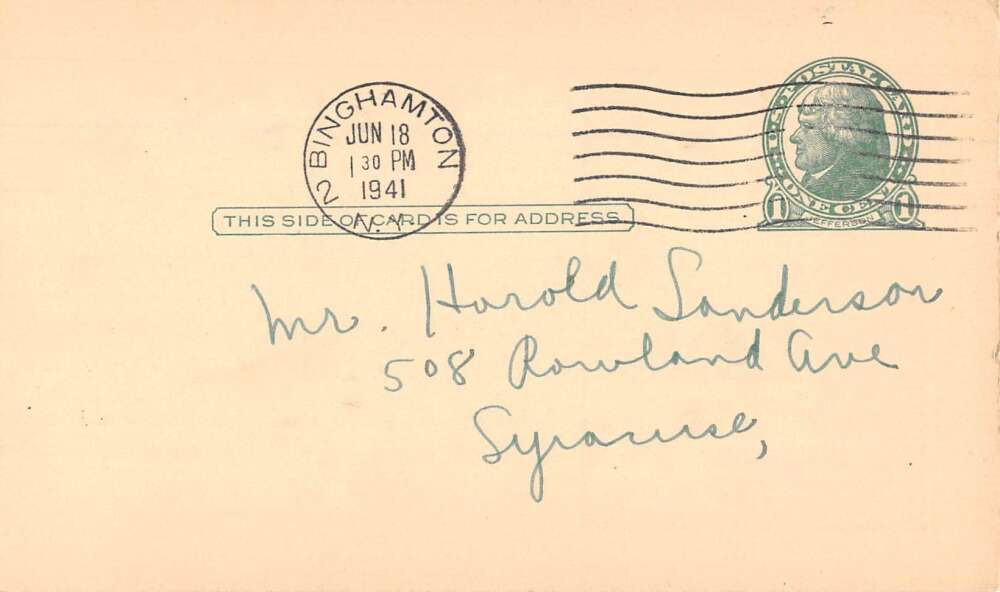 BINGHAMTON
JUN 18
1 30 PM
1941
2
N.Y.
U.S. POSTAL CARD
ONE CENT
1 JEFFERSON 1
THIS SIDE OF CARD IS FOR ADDRESS
Mr. Harold Sanderson
508 Rowland Ave
Syracuse,